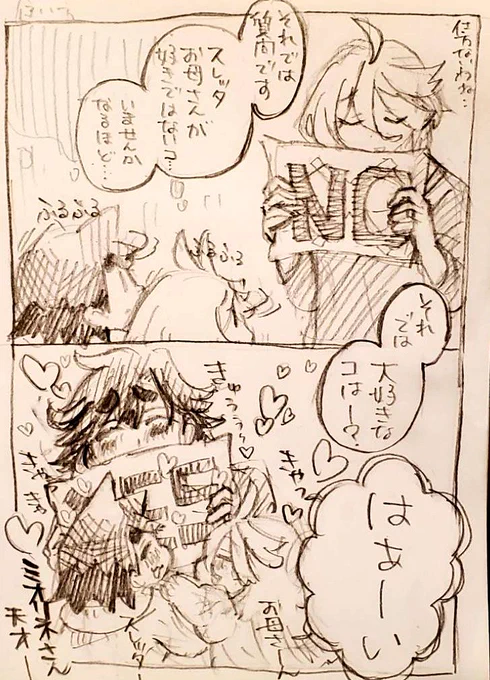 仕方ないわね…
それでは
質問です
スレッタ
お母さんが
好きではない？
いませんか
なるほど…
ぷるぷる
ぷるぷる
NO
それ
では
大好きな
コはー？
はあーい
きゅうぅ〜
きゃっ
きゃ
きゃ
お母さ
スレッター
ミオリネさん